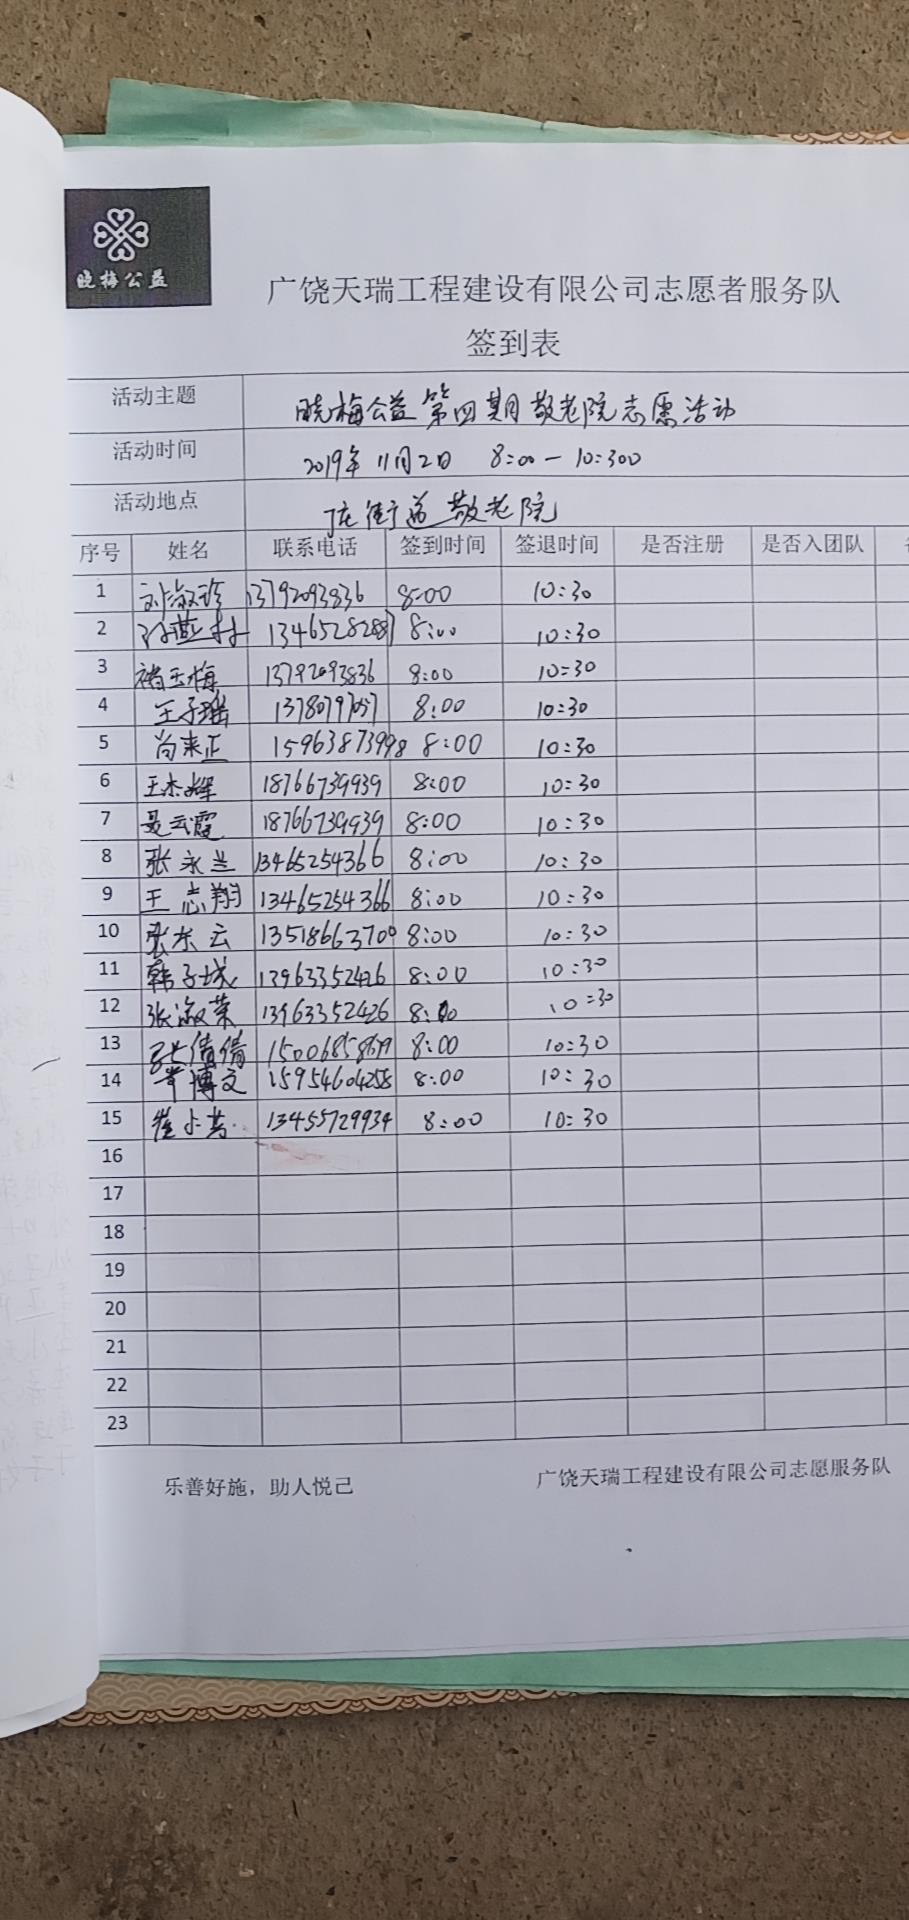 晓梅公益
广饶天瑞工程建设有限公司志愿者服务队
签到表
活动主题 晓梅公益第四期敬老院志愿活动
活动时间 2019年11月2日 8:00—10:300
活动地点 街道敬老院
序号 姓名 联系电话 签到时间 签退时间 是否注册 是否入团队
1 刘淑珍 13792093836 8:00 10:30
2 13465282887 8:00 10:30
3 褚玉梅 13792093836 8:00 10:30
4 王子瑶 8:00 10:30
5 尚来正 15963873998 8:00 10:30
6 王杰辉 18766739939 8:00 10:30
7 聂云霞 18766739939 8:00 10:30
8 张永兰 13465254366 8:00 10:30
9 王志翔 13465254366 8:00 10:30
10 张东云 13518663700 8:00 10:30
11 韩子城 13963352426 8:00 10:30
12 张淑荣 13963352426 8:00 10:30
13 张倩倩 8:00 10:30
14 博文 15954604258 8:00 10:30
15 崔小 13455729934 8:00 10:30
16
17
18
19
20
21
22
23
乐善好施，助人悦己 广饶天瑞工程建设有限公司志愿服务队